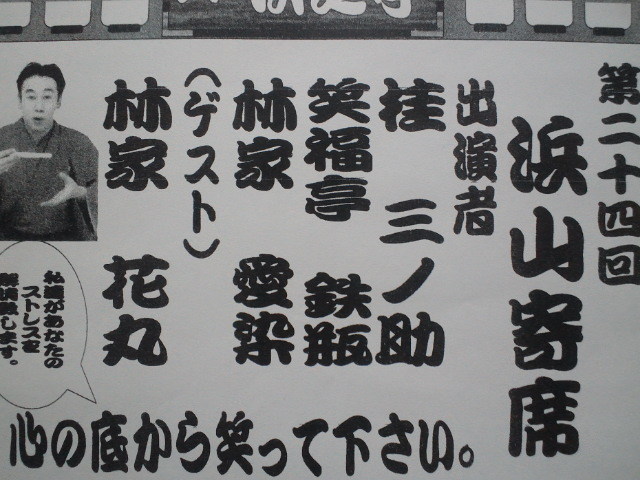 第二十四回
浜山寄席
出演者
桂 三ノ助
笑福亭 鉄瓶
林家 愛染
(ゲスト)
林家 花丸
私達があなたの
ストレスを
解消致します。
心の底から笑って下さい。